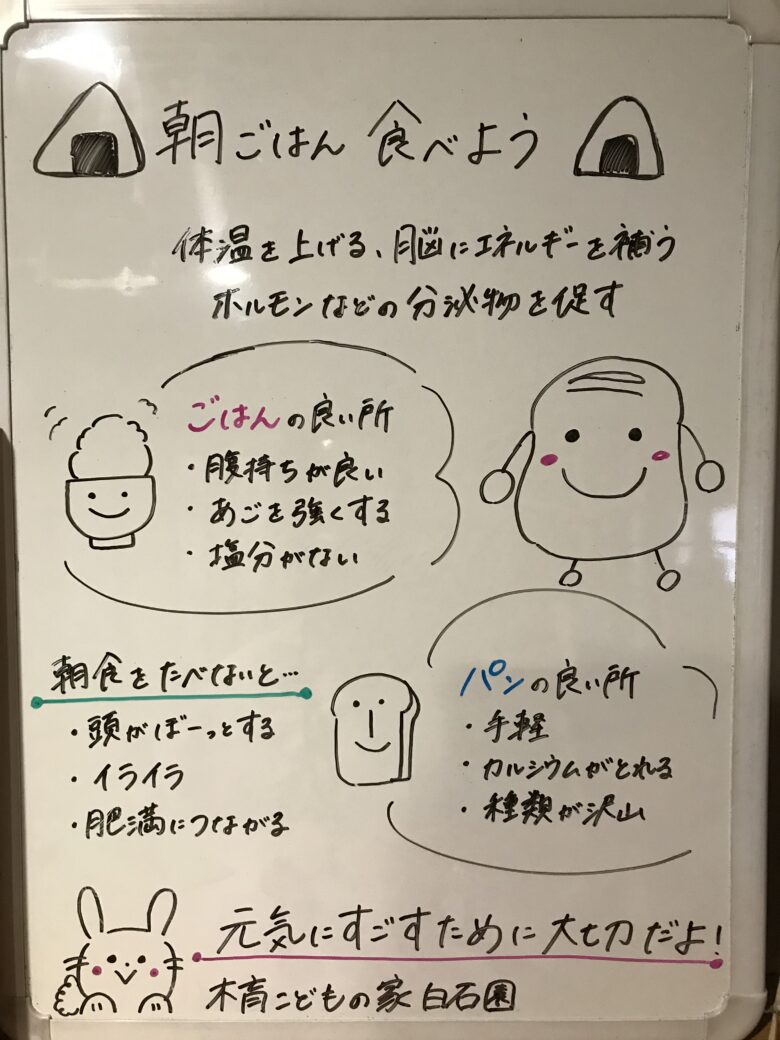 朝ごはん 食べよう
体温を上げる、脳にエネルギーを補う
ホルモンなどの分泌物を促す
ごはんの良い所
・腹持ちが良い
・あごを強くする
・塩分がない
朝食をたべないと…
・頭がぼーっとする
・イライラ
・肥満につながる
パンの良い所
・手軽
・カルシウムがとれる
・種類が沢山
元気にすごすために大切だよ!
木育こどもの家 白石園